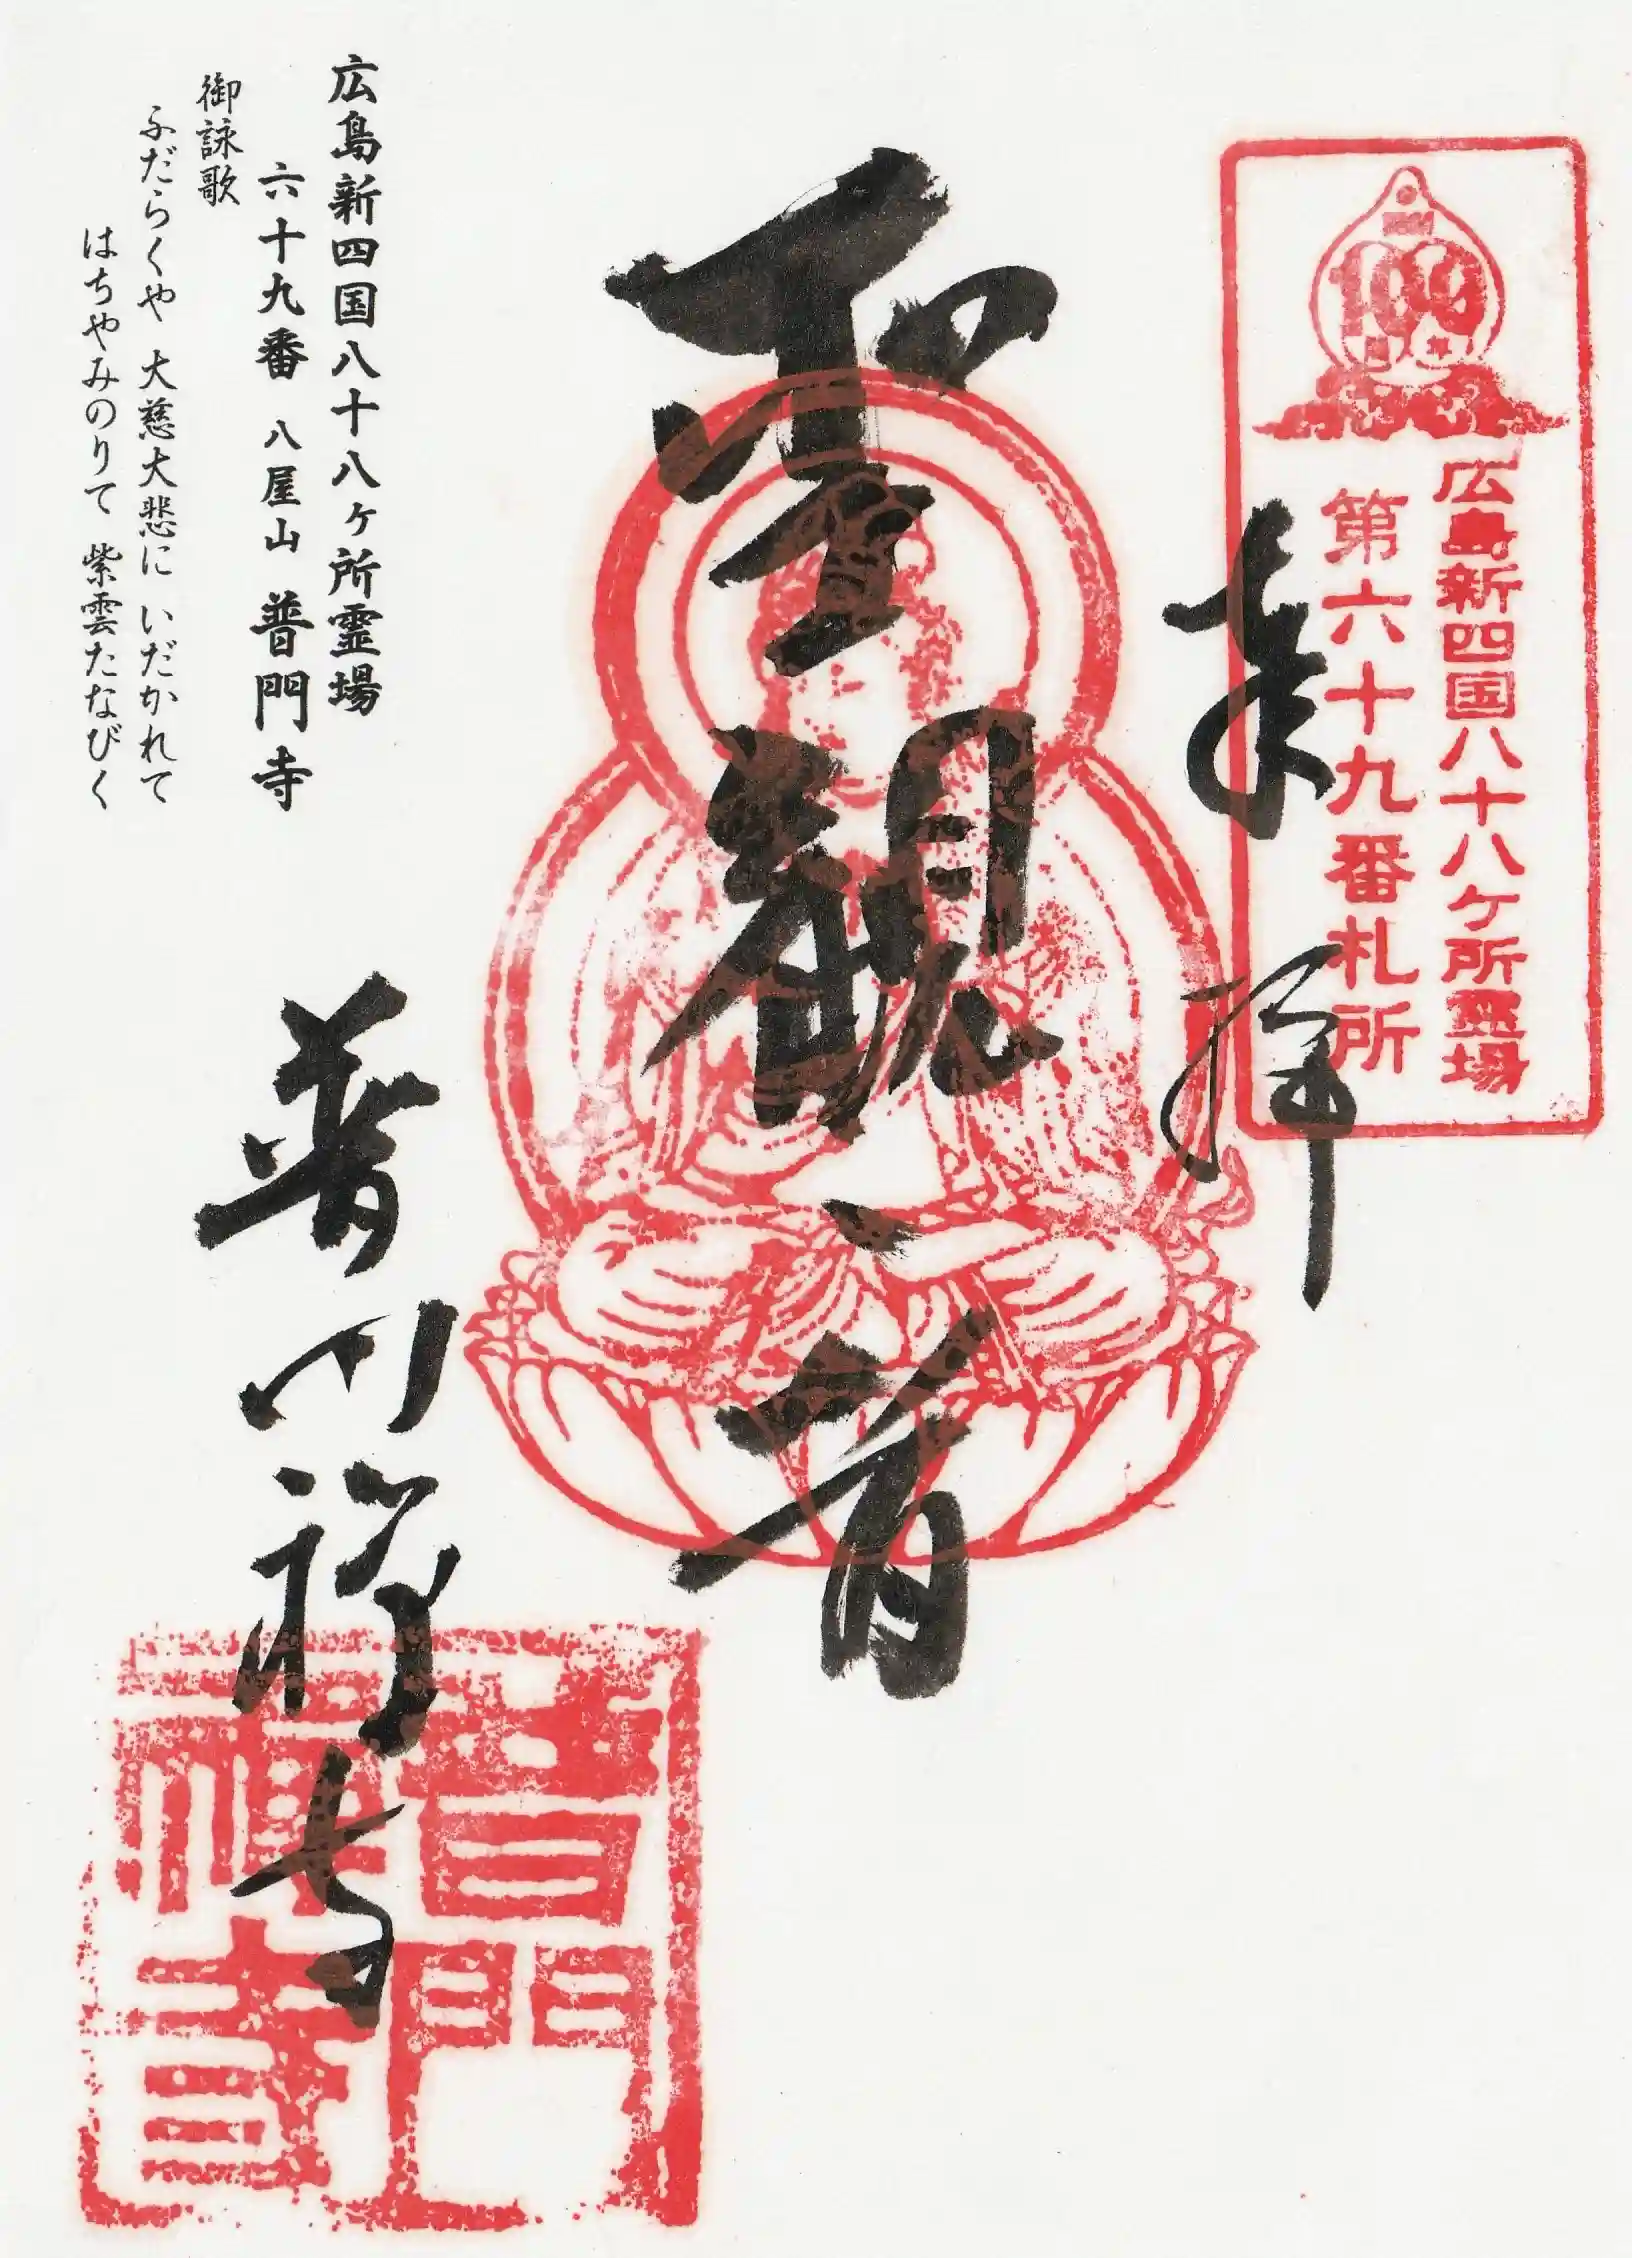 広島新四国八十八ケ所霊場
第六十九番札所
奉拝
聖観音
広島新四国八十八ヶ所霊場
六十九番 八屋山 普門寺
御詠歌
ふだらくや 大慈大悲に いだかれて
はちやみのりて 紫雲たなびく
普門禅寺
普門
禅寺